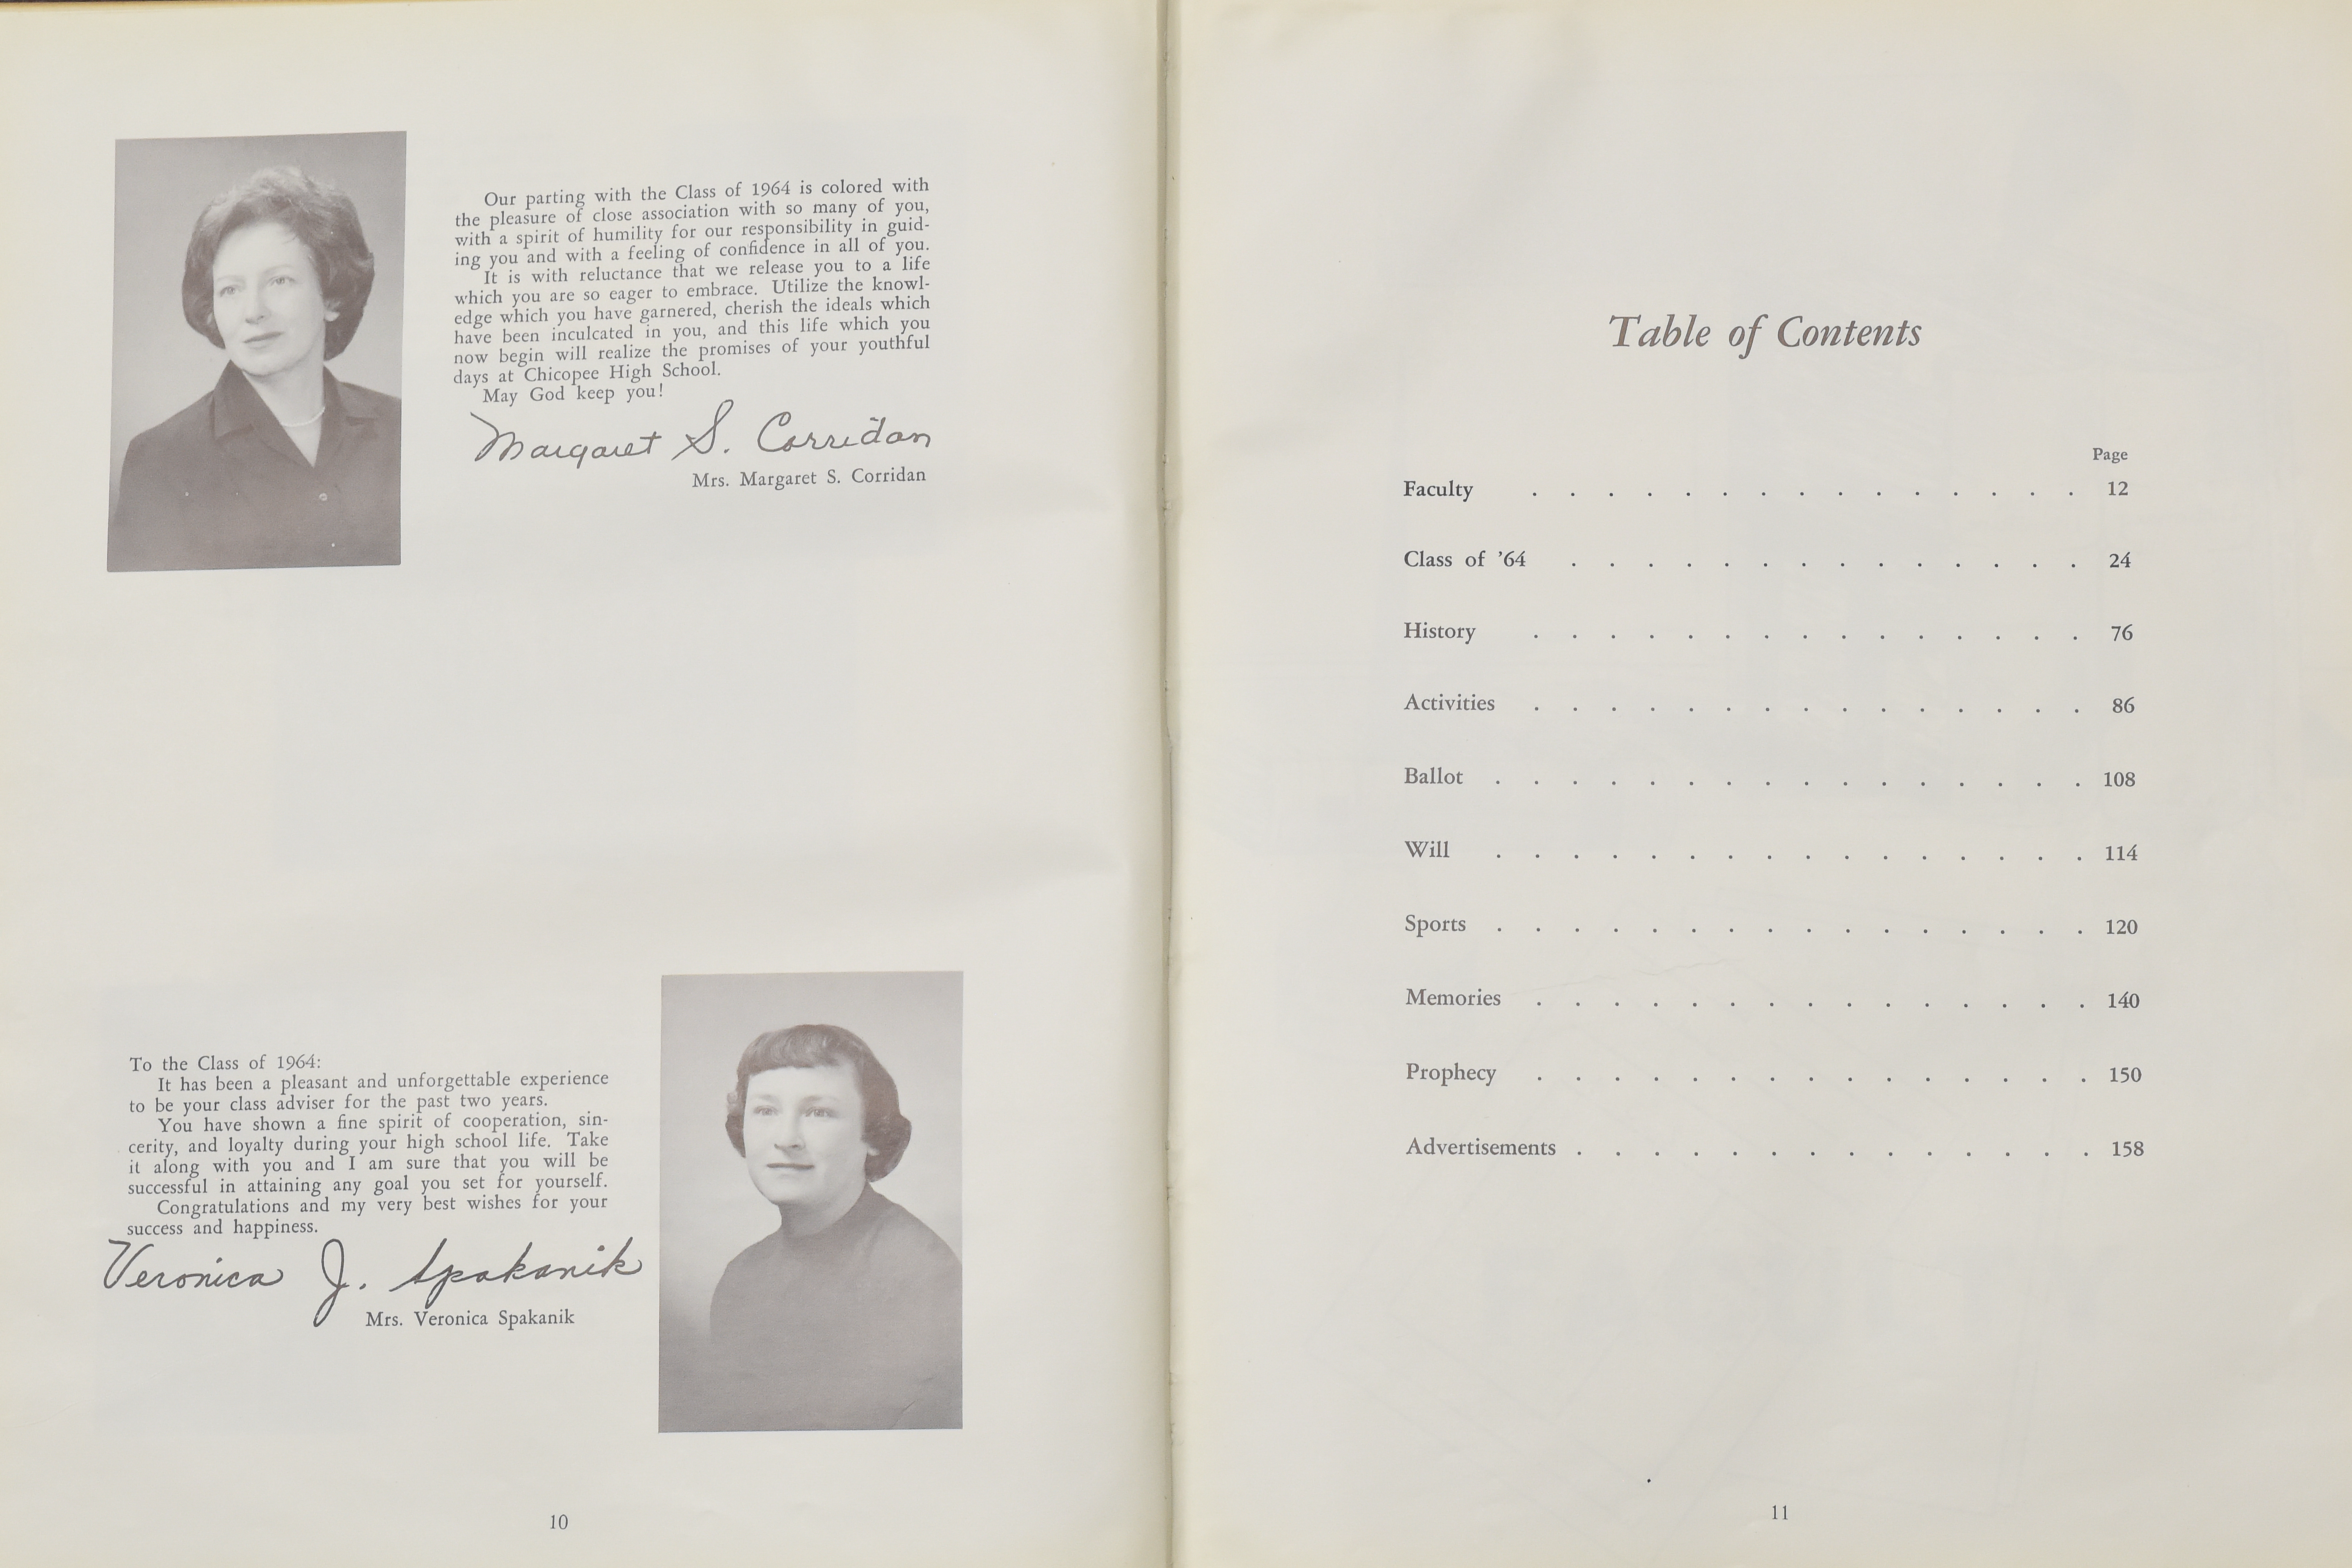 Our parting with the Class of 1964 is colored with
the pleasure of close association with so many of you,
with a spirit of humility for our responsibility in guid-
ing you and with a feeling of confidence in all of you.
It is with reluctance that we release you to a life
which you are so eager to embrace. Utilize the knowl-
edge which you have garnered, cherish the ideals which
have been inculcated in you, and this life which you
now begin will realize the promises of your youthful
days at Chicopee High School.
May God keep you!
Margaret S. Corridan
Mrs. Margaret S. Corridan
To the Class of 1964:
It has been a pleasant and unforgettable experience
to be your class adviser for the past two years.
You have shown a fine spirit of cooperation, sin-
cerity, and loyalty during your high school life. Take
it along with you and I am sure that you will be
successful in attaining any goal you set for yourself.
Congratulations and my very best wishes for your
success and happiness.
Veronica J. Spakanik
Mrs. Veronica Spakanik
10
Table of Contents
Page
Faculty . . . . . . . . . . . . . . . 12
Class of '64 . . . . . . . . . . . . . . 24
History . . . . . . . . . . . . . . . 76
Activities . . . . . . . . . . . . . . . 86
Ballot . . . . . . . . . . . . . . . . 108
Will . . . . . . . . . . . . . . . . 114
Sports . . . . . . . . . . . . . . . . 120
Memories . . . . . . . . . . . . . . . 140
Prophecy . . . . . . . . . . . . . . . 150
Advertisements . . . . . . . . . . . . . . 158
11